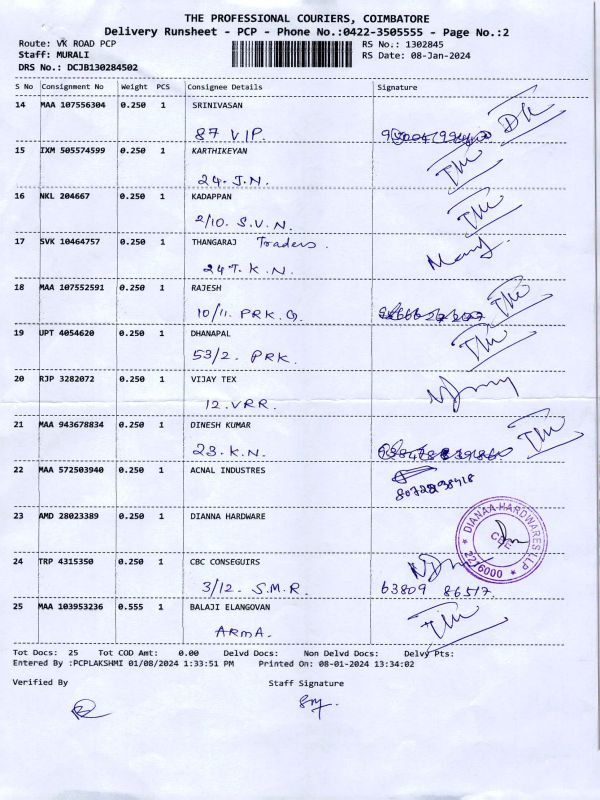 THE PROFESSIONAL COURIERS, COIMBATORE
Delivery Runsheet - PCP - Phone No.:0422-3505555 - Page No.:2
Route: VK ROAD PCP RS No.: 1302845
Staff: MURALI RS Date: 08-Jan-2024
DRS No.: DCJB130284502
S No Consignment No Weight PCS Consignee Details Signature
14 MAA 107556304 0.250 1 SRINIVASAN
87 VIP.
15 IXM 505574599 0.250 1 KARTHIKEYAN
24. J.N.
16 NKL 204667 0.250 1 KADAPPAN
2/10. S.V.N.
17 SVK 10464757 0.250 1 THANGARAJ Traders.
24 T.K.N.
18 MAA 107552591 0.250 1 RAJESH
10/11. PRK.Q.
19 UPT 4054620 0.250 1 DHANAPAL
53/2. PRK.
20 RJP 3282072 0.250 1 VIJAY TEX
12. VRR.
21 MAA 943678834 0.250 1 DINESH KUMAR
23. K.N.
22 MAA 572503940 0.250 1 ACNAL INDUSTRES
23 AMD 28023389 0.250 1 DIANNA HARDWARE
DIANAA HARDWARES LLP
CBE
2216000
24 TRP 4315350 0.250 1 CBC CONSEGUIRS
3/12. S.M.R. 63809 86517.
25 MAA 103953236 0.555 1 BALAJI ELANGOVAN
ARMA.
Tot Docs: 25 Tot COD Amt: 0.00 Delvd Docs: Non Delvd Docs: Delvy Pts:
Entered By :PCPLAKSHMI 01/08/2024 1:33:51 PM Printed On: 08-01-2024 13:34:02
Verified By Staff Signature